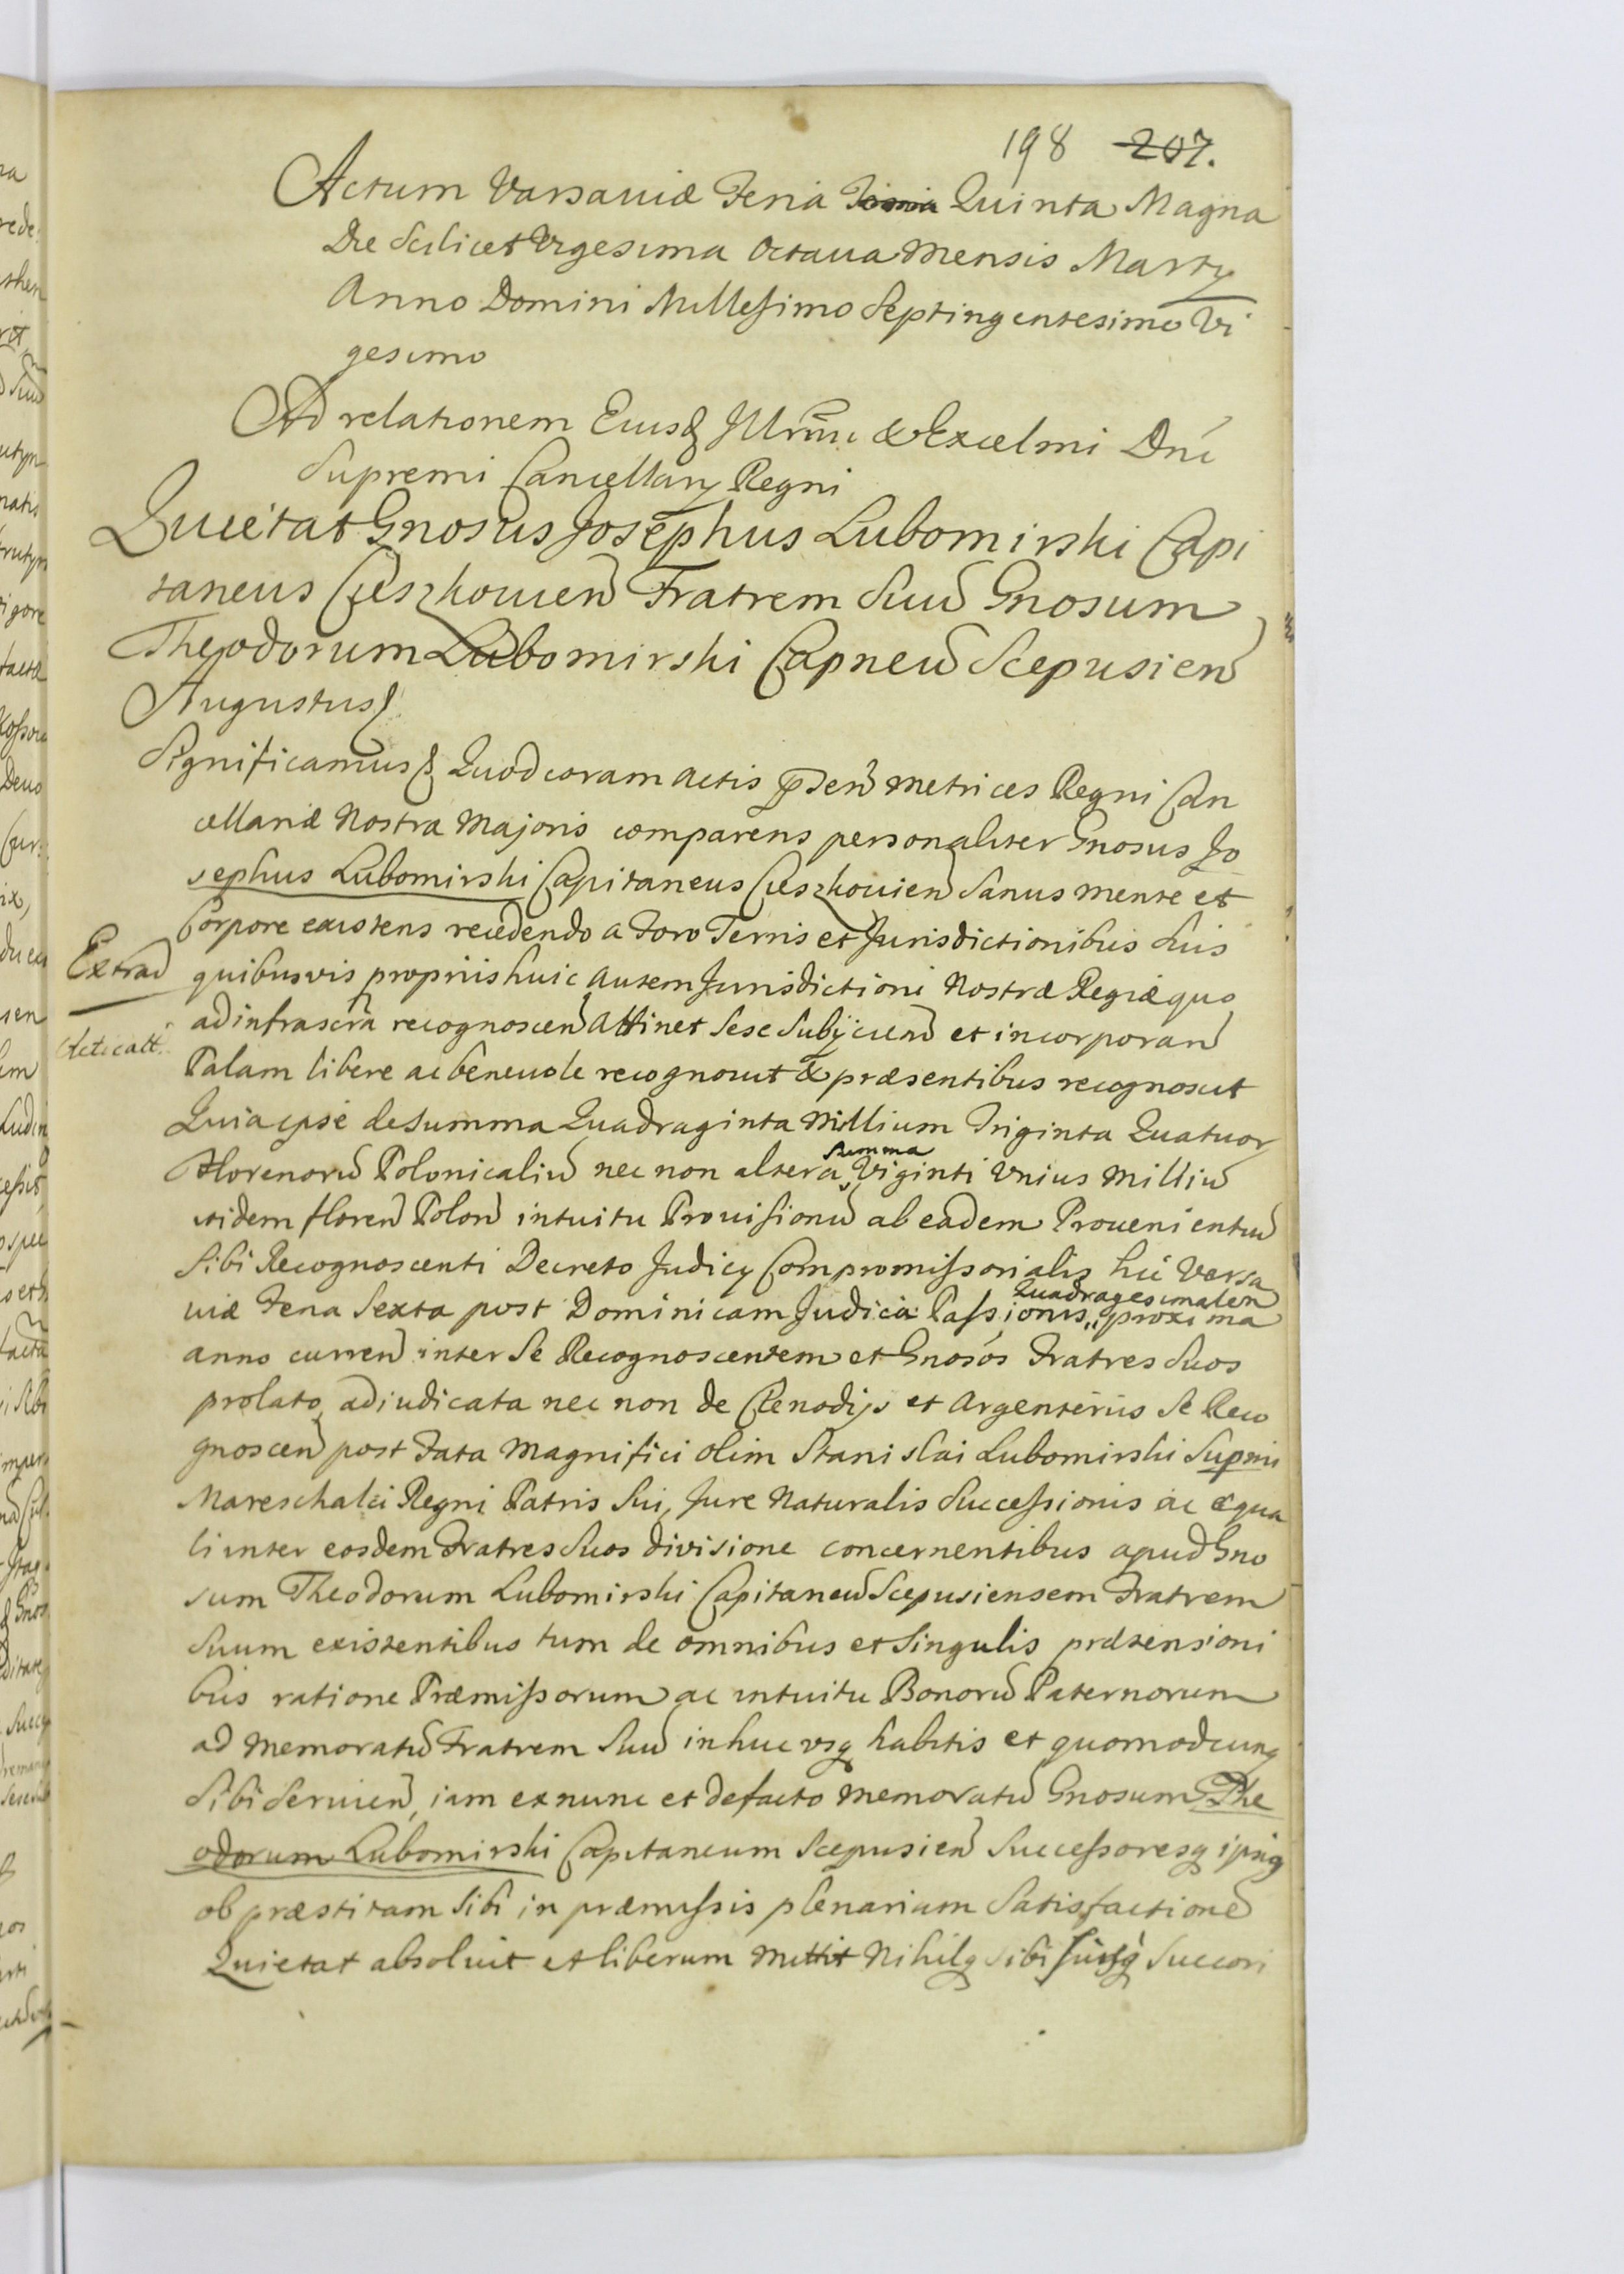 198 207.
Actum Varsaviæ Feria Quinta Magna
Die Scilicet Vigesima Octava Mensis Martÿ
Anno Domini Millesimo Septingentesimo Vi
gesimo
Ad relationem Eiusd Illrmi & Excelmi Dni
Supremi Cancellarÿ Regni
Quietat Gnosus Josephus Lubomirski Capi
taneus Cieszkovien Fratrem Suu Gnosum
Theodorum Lubomirski Capneu Scepusien
Augustus
Significamus Quod coram Actis pden Metrices Regni Can
cellariæ Nostræ Majoris comparens personaliter Gnosus Jo
sephus Lubomirski Capitaneus Cieszkovien Sanus mente et
Corpore existens recedendo a Foro Terris et Jurisdictionibus Suis
Extrad
quibusvis propriis huic autem Jurisdictioni Nostræ Regiæ quo
ad infrascra recognoscen Attinet Sese Subÿcien et incorporan
Palam libere ac benevole recognovit & præsentibus recognoscit
Quia ipse de Summa Quadraginta Millium Triginta Quatuor
Florenoru Polonicaliu nec non altera Summa Viginti Unius Milliu
itidem floren Polon intuitu Provisionu ab eadem Provenientiu
Sibi Recognoscenti Decreto Judicÿ Compromissorialis hic Varsa
viæ Feria Sexta post Dominicam Judica Passionis Quadragesimalen proxima
anno curren inter Se Recognoscentem et Gnosos Fratres Suos
prolato adiudicata nec non de Clenodÿs et Argenteriis Se Reco
gnoscen post Fata Magnifici olim Stanislai Lubomirski Supmi
Mareschalci Regni Patris Sui, Jure Naturalis Successionis ac æqua
li inter eosdem Fratres Suos divisione concernentibus apud Gno
sum Theodorum Lubomirski Capitaneu Scepusiensem Fratrem
Suum existentibus tum de omnibus et Singulis prætensioni
bus ratione Præmissorum ac intuitu Bonoru Paternorum
ad Memoratu Fratrem Suu in huc usq habitis et quomodcunq
Sibi Servien, iam ex nunc et de facto memoratu Gnosum The
odorum Lubomirski Capitaneum Scepusien Successoresq ipsiq
ob præstitam Sibi in præmissis plenariam Satisfactione
Quietat absolvit et liberum Mittit Nihilq Sibi Suisq Succori